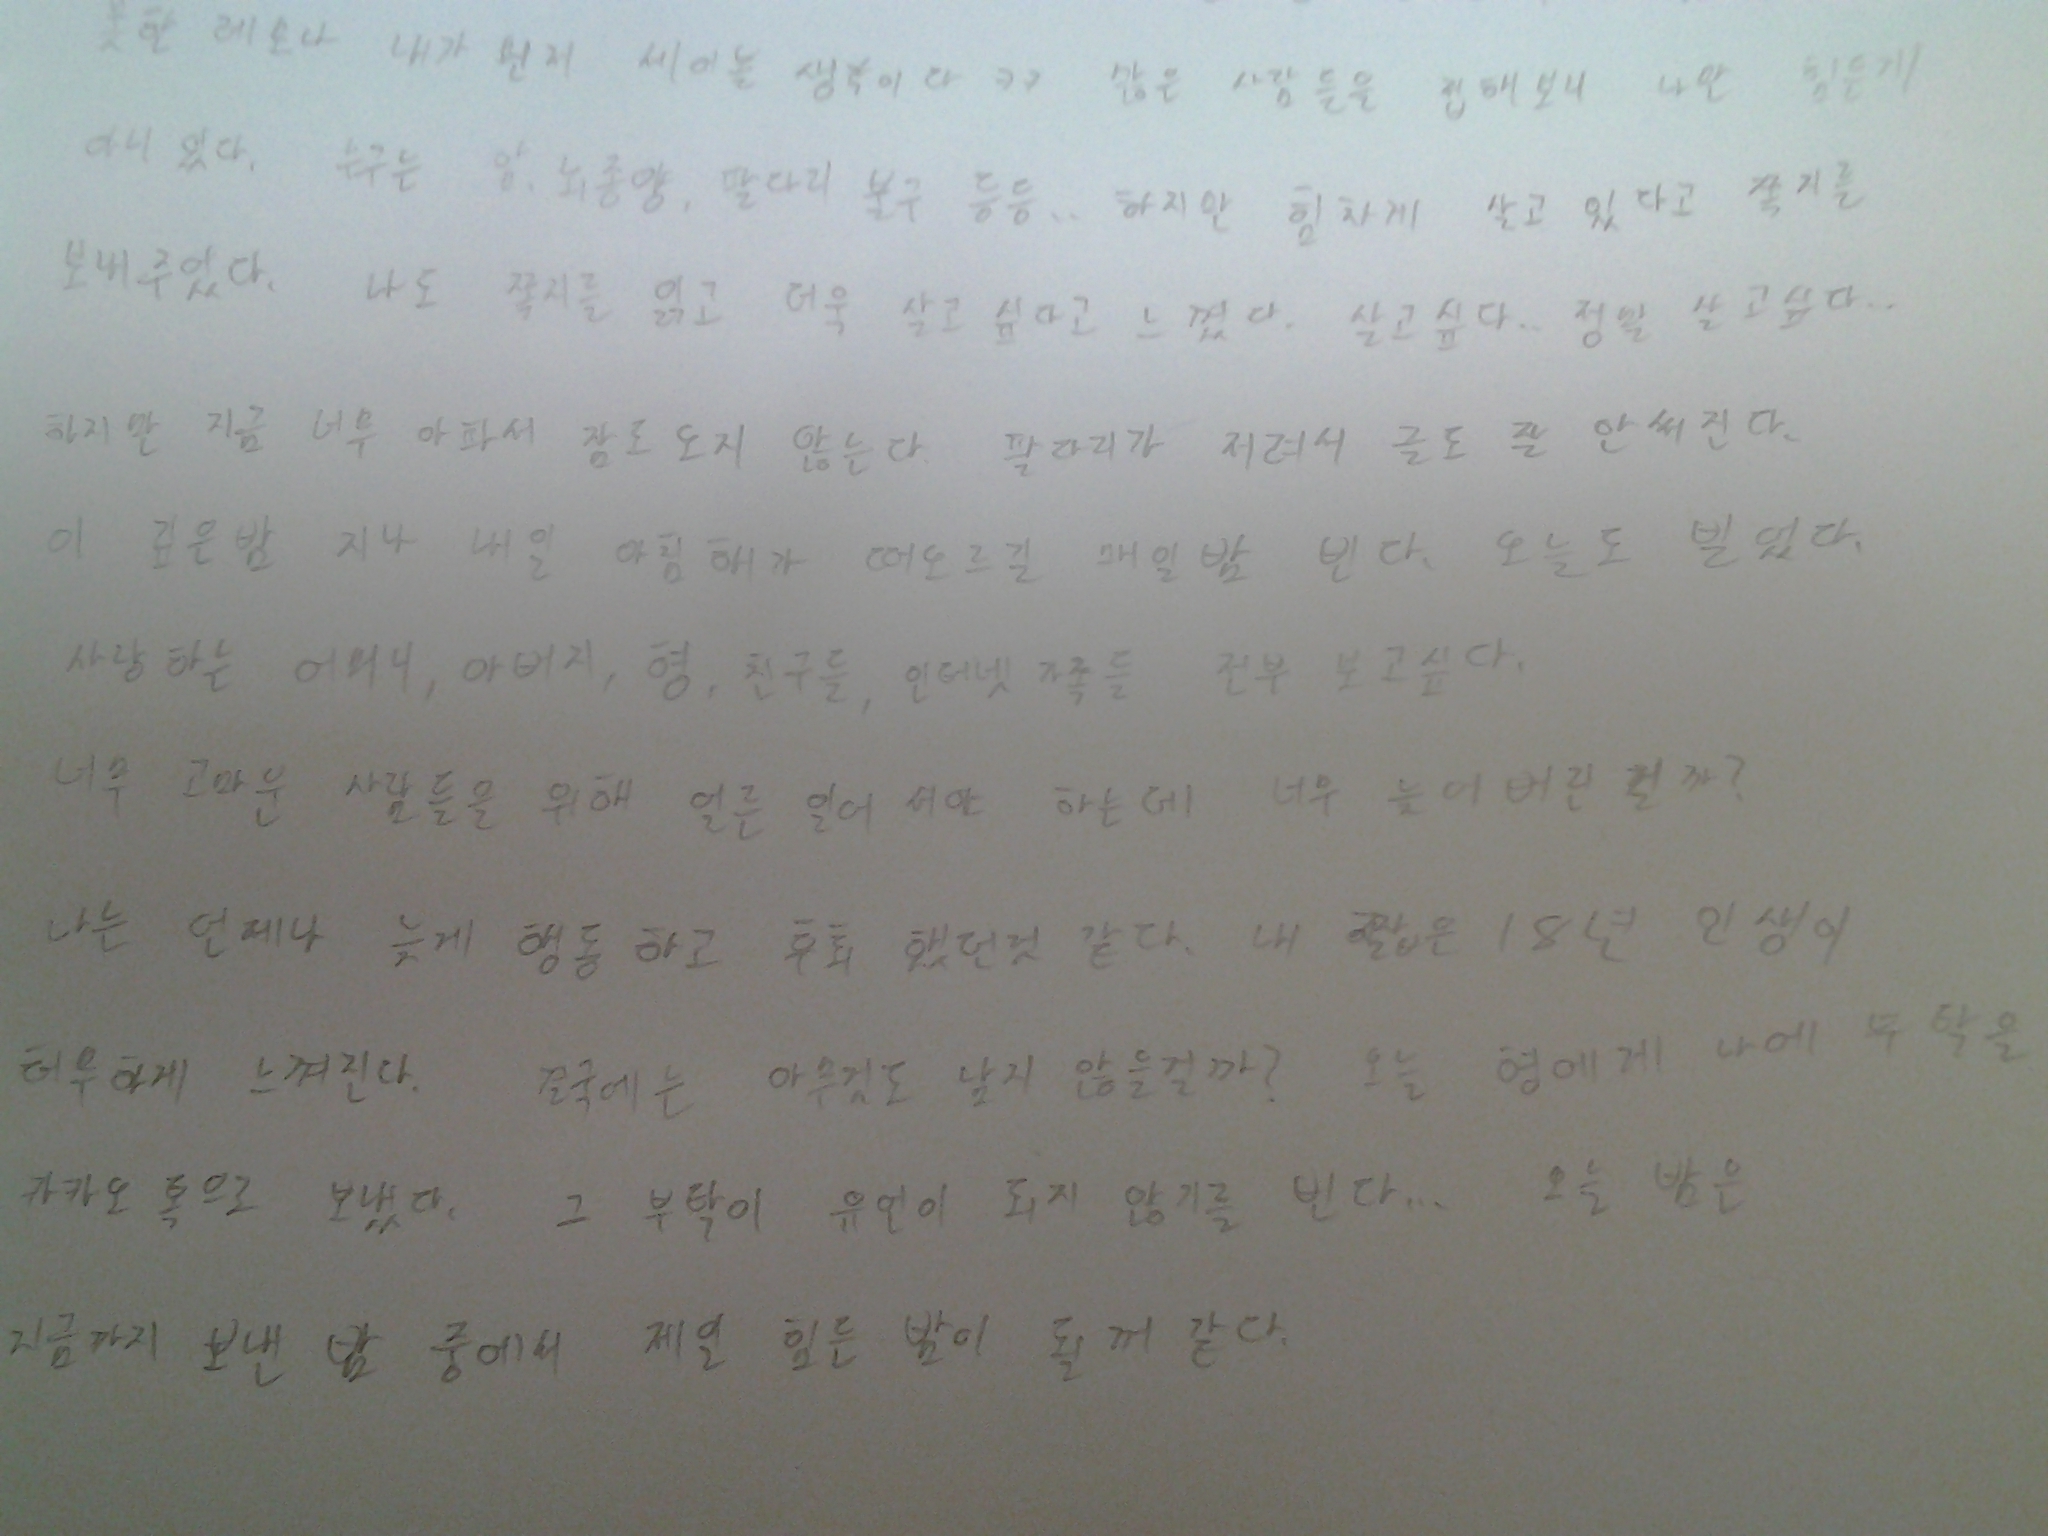 못한 레소나 내가 먼저 세어볼 생각이다 ㅋㅋ 많은 사람들을 접해보니 나만 힘든게
아니 었다. 누구는 암, 뇌종양, 팔다리 불구 등등.. 하지만 힘차게 살고 있다고 쪽지를
보내 주었다. 나도 쪽지를 읽고 더욱 살고 싶다고 느꼈다. 살고싶다.. 정말 살고싶다..
하지만 지금 너무 아파서 잠도 오지 않는다. 팔다리가 저려서 글도 잘 안써진다.
이 깊은밤 지나 내일 아침 해가 떠오르길 매일밤 빈다. 오늘도 빌었다.
사랑하는 어머니, 아버지, 형, 친구들, 인터넷 가족들 전부 보고싶다.
너무 고마운 사람들을 위해 얼른 일어 서야 하는데 너무 늦어버린 걸까?
나는 언제나 늦게 행동하고 후회 했던것 같다. 내 짧은 18년 인생이
허무하게 느껴진다. 결국에는 아무것도 남지 않을걸까? 오늘 형에게 나에 부탁을
카카오 톡으로 보냈다. 그 부탁이 유언이 되지 않기를 빈다... 오늘 밤은
지금까지 보낸 밤 중에서 제일 힘든 밤이 될꺼 같다.